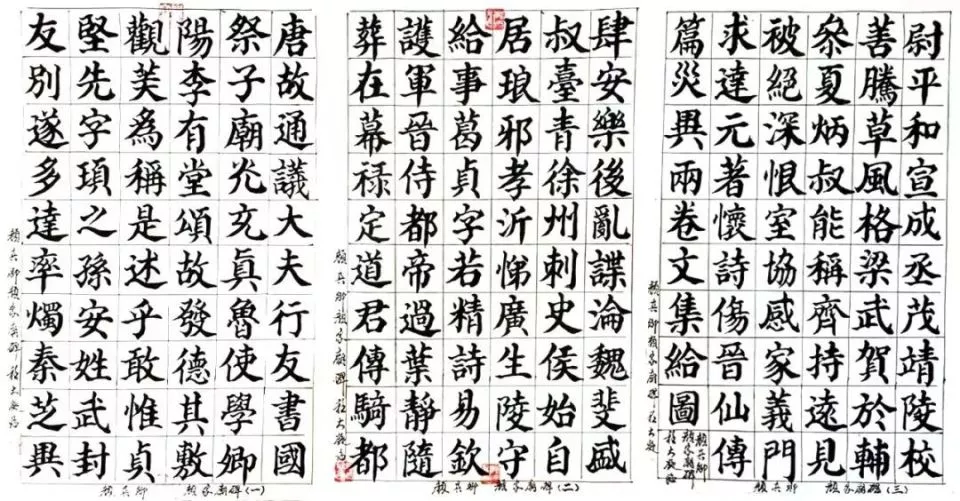 唐故通議大夫行友書國
祭子廟光充真魯使學卿
陽李有堂頌故發德其敷
觀芙為稱是述乎敢惟貞
堅先字頊之孫安姓武封
友別遂多達率燭秦芝興
顏真卿顏家廟碑
顏真卿 顏家廟碑(一)
肆安樂後亂諜淪魏斐盛
叔臺青徐州刺史侯始自
居琅邪孝沂悌廣生陵守
給事葛貞字若精詩易欽
護軍晉侍都帝過葉靜隨
葬在幕祿定道君傳騎都
顏真卿顏家廟碑
顏真卿 顏家廟碑(二)
尉平和宣成丞茂靖陵校
善騰草風格梁武賀於輔
參夏炳叔能稱齊持遠見
被絕深恨室協感家義門
求達元著懷詩傷晉仙傳
篇災異兩卷文集給圖
顏真卿
顏家廟碑
顏真卿顏家廟碑
顏真卿 顏家廟碑(三)